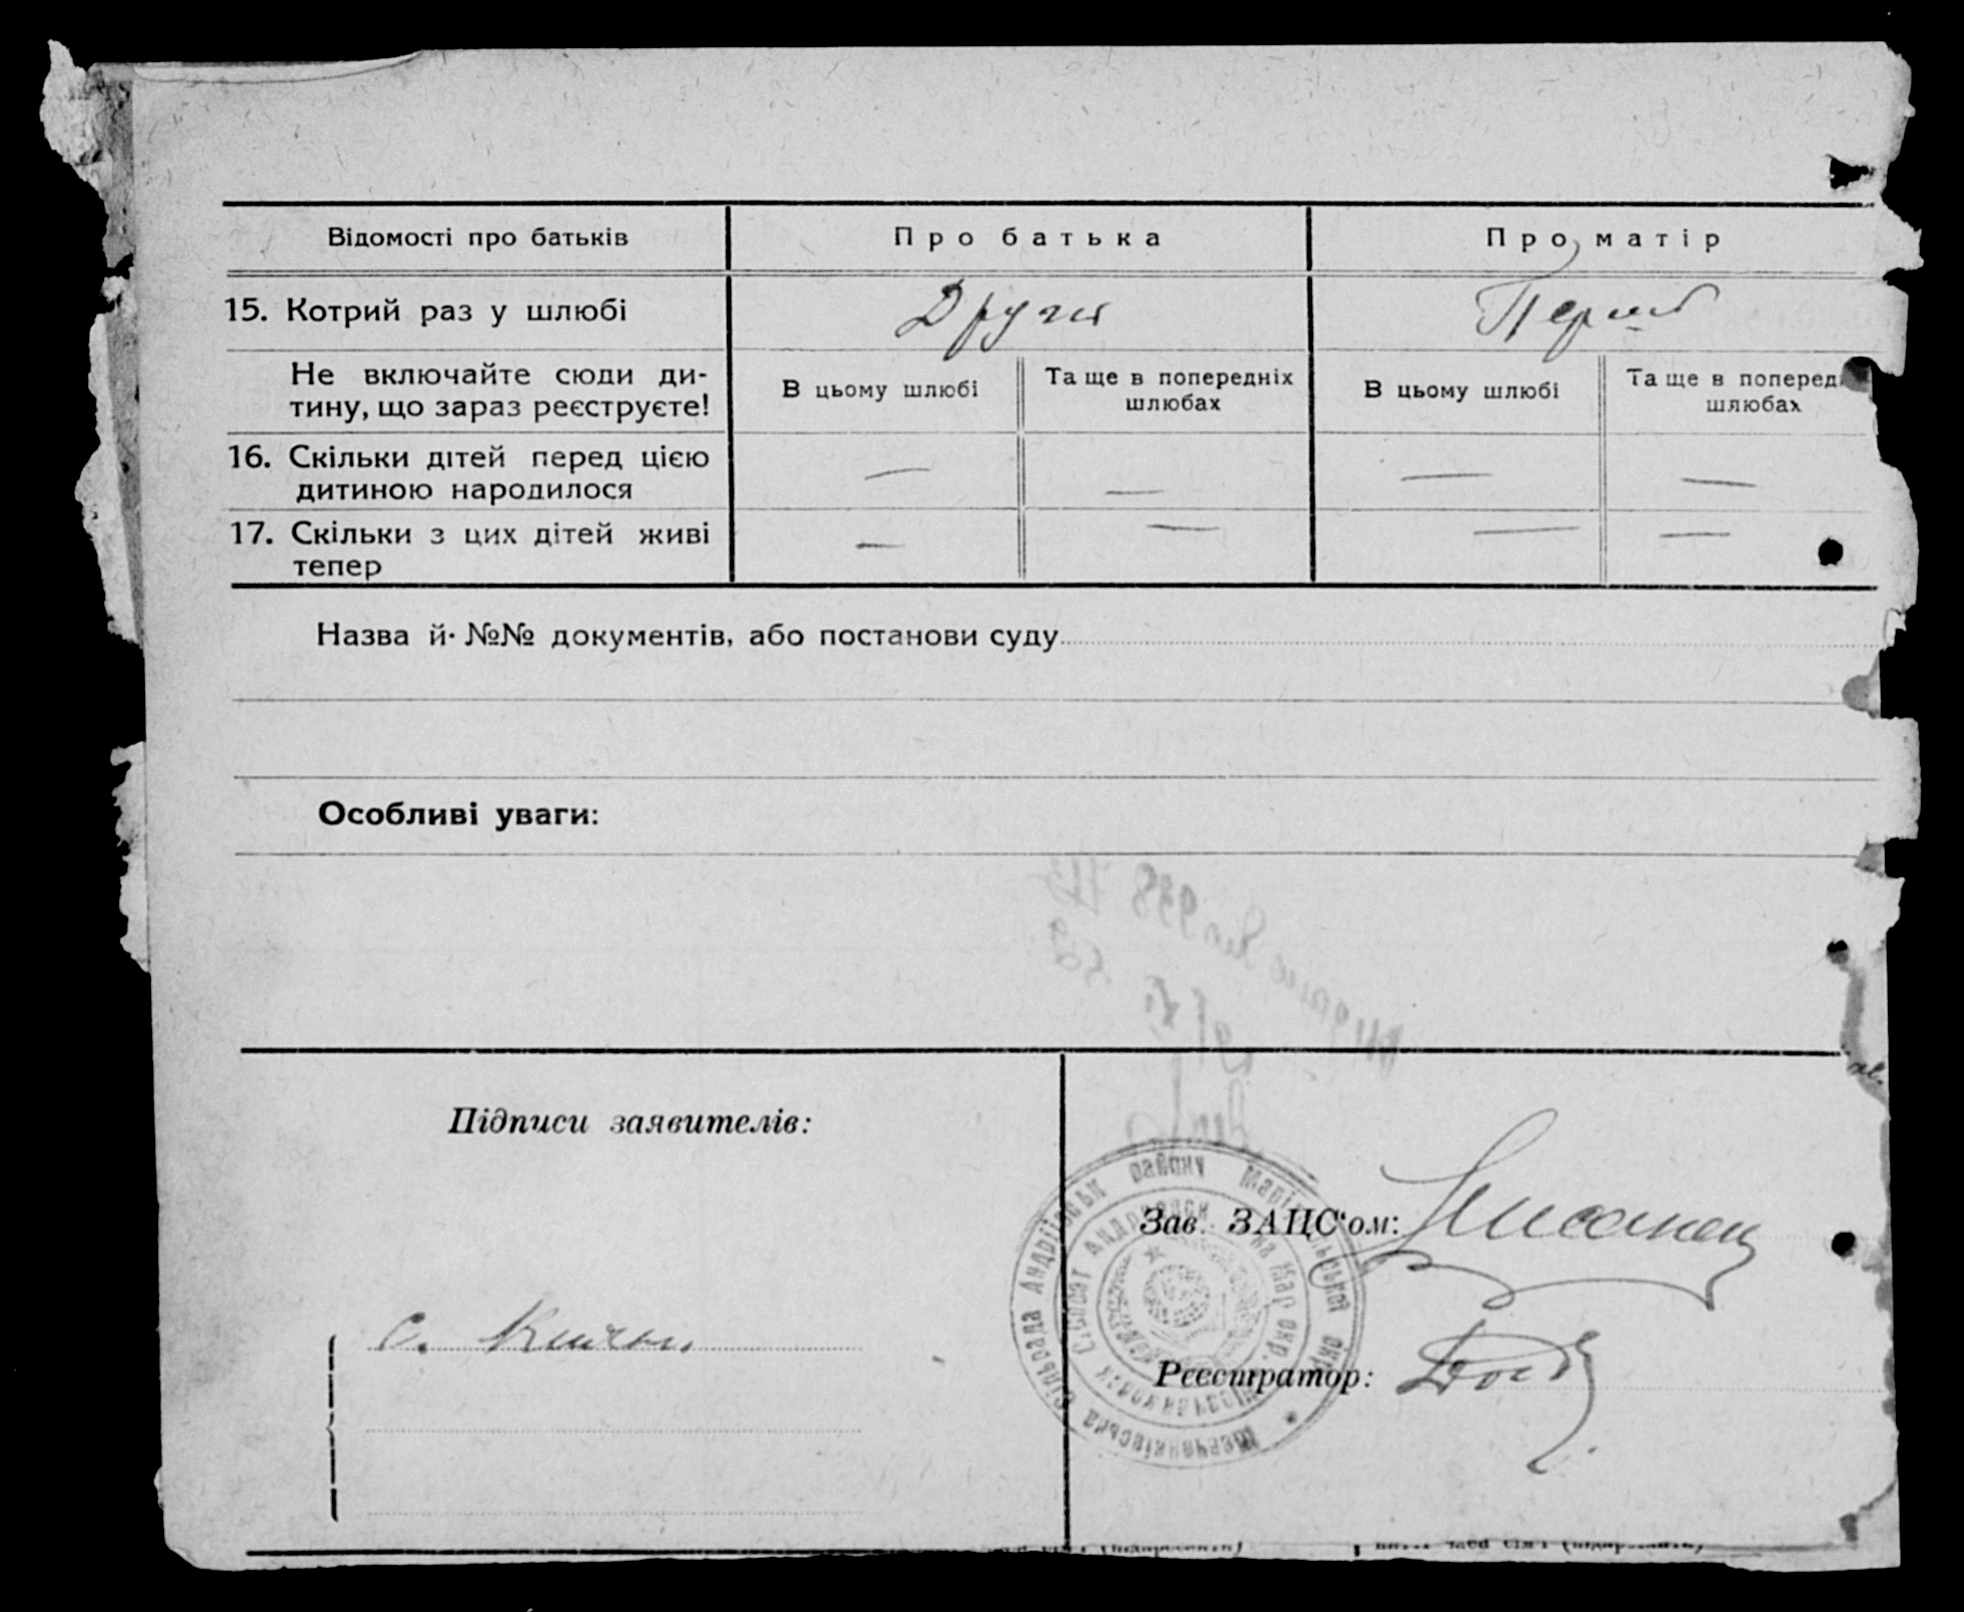 Відомості про батьків
Про батька
Про матір
15. Котрий раз у шлюбі
Други
Перши
Не включайте сюди ди-
тину, що зараз реєструєте!
В цьому шлюбі
Та ще в попередніх
шлюбах
В цьому шлюбі
Та ще в поперед
шлюбах
16. Скільки дітей перед цією
дитиною народилося
— — — —
17. Скільки з цих дітей живі
тепер
— — — —
Назва й №№ документів, або постанови суду
Особливі уваги:
Підписи заявителів:
Зав. ЗАЦС'ом:
с.
Реєстратор:
сільрада Андріївськ району Маріупольської окр.